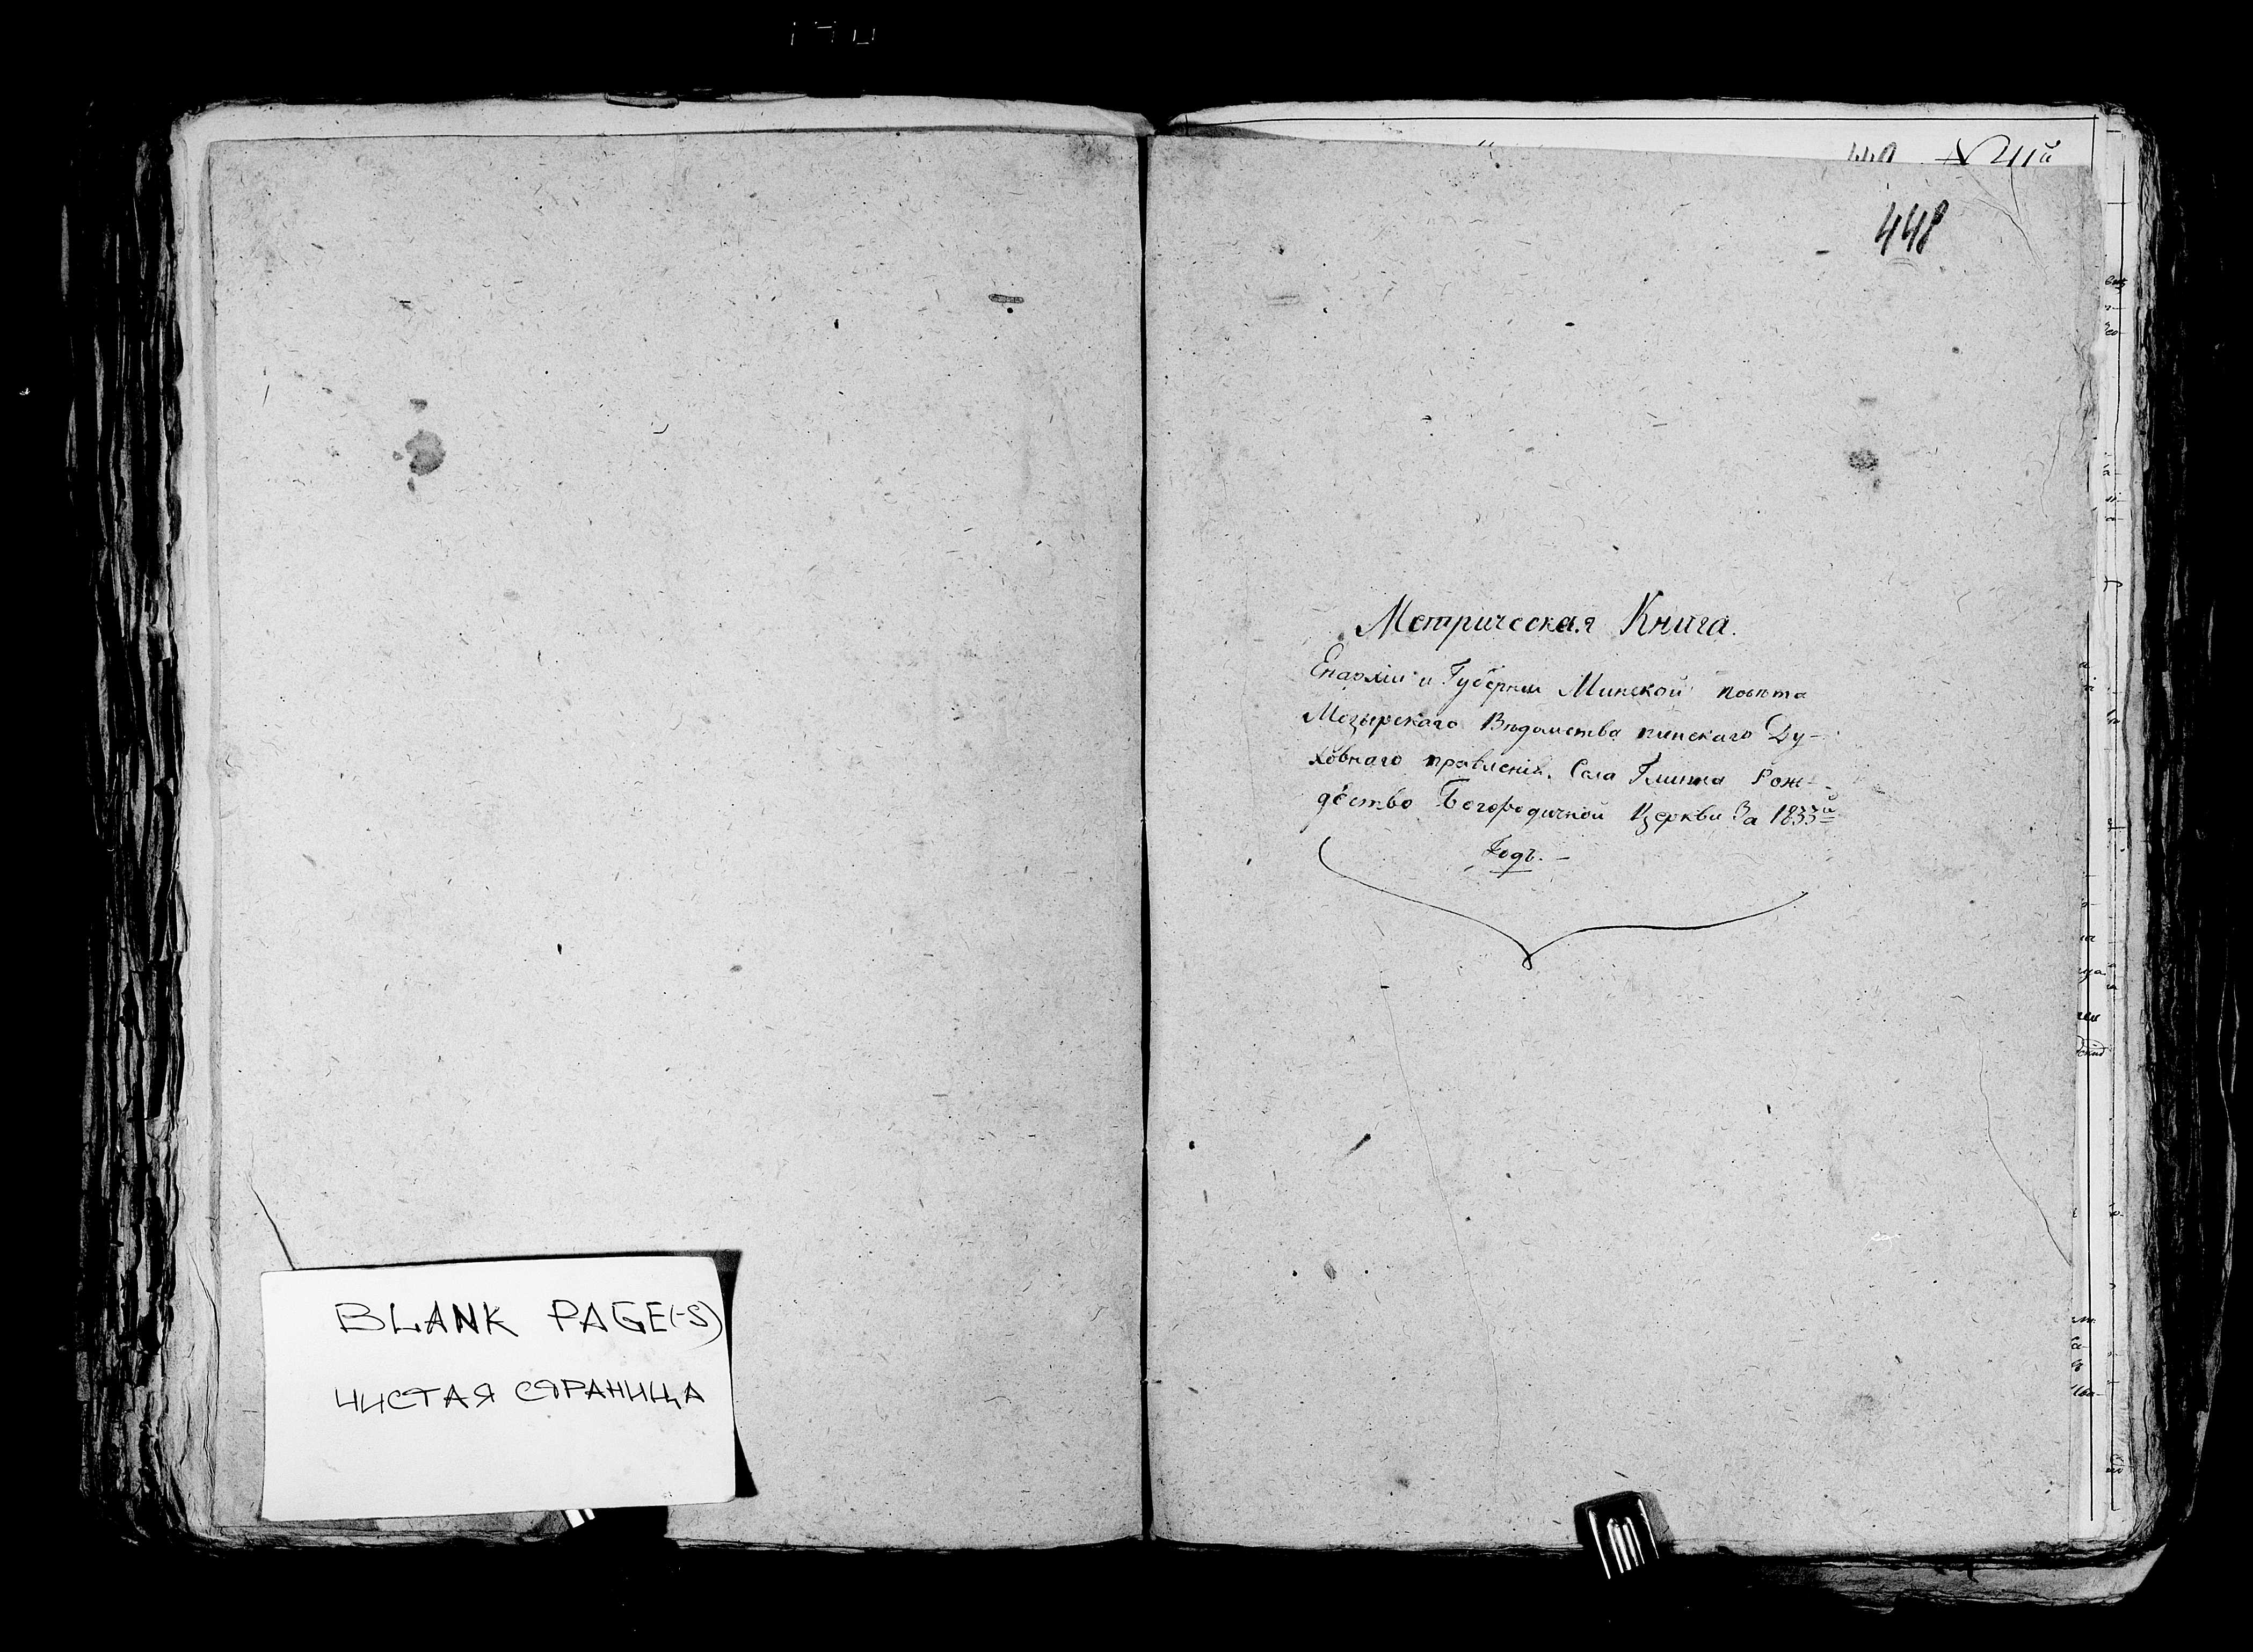 BLANK PAGE(-S)
ЧИСТАЯ СТРАНИЦА
449 № 41й
448
Метрическая Книга.
Епархіи и Губерніи Минской повѣта
Мозырскаго Вѣдомства пинскаго Ду-
ховнаго правленія. Села Глинна Рож-
дество Богородичной Церкви За 1833й
Годъ. —